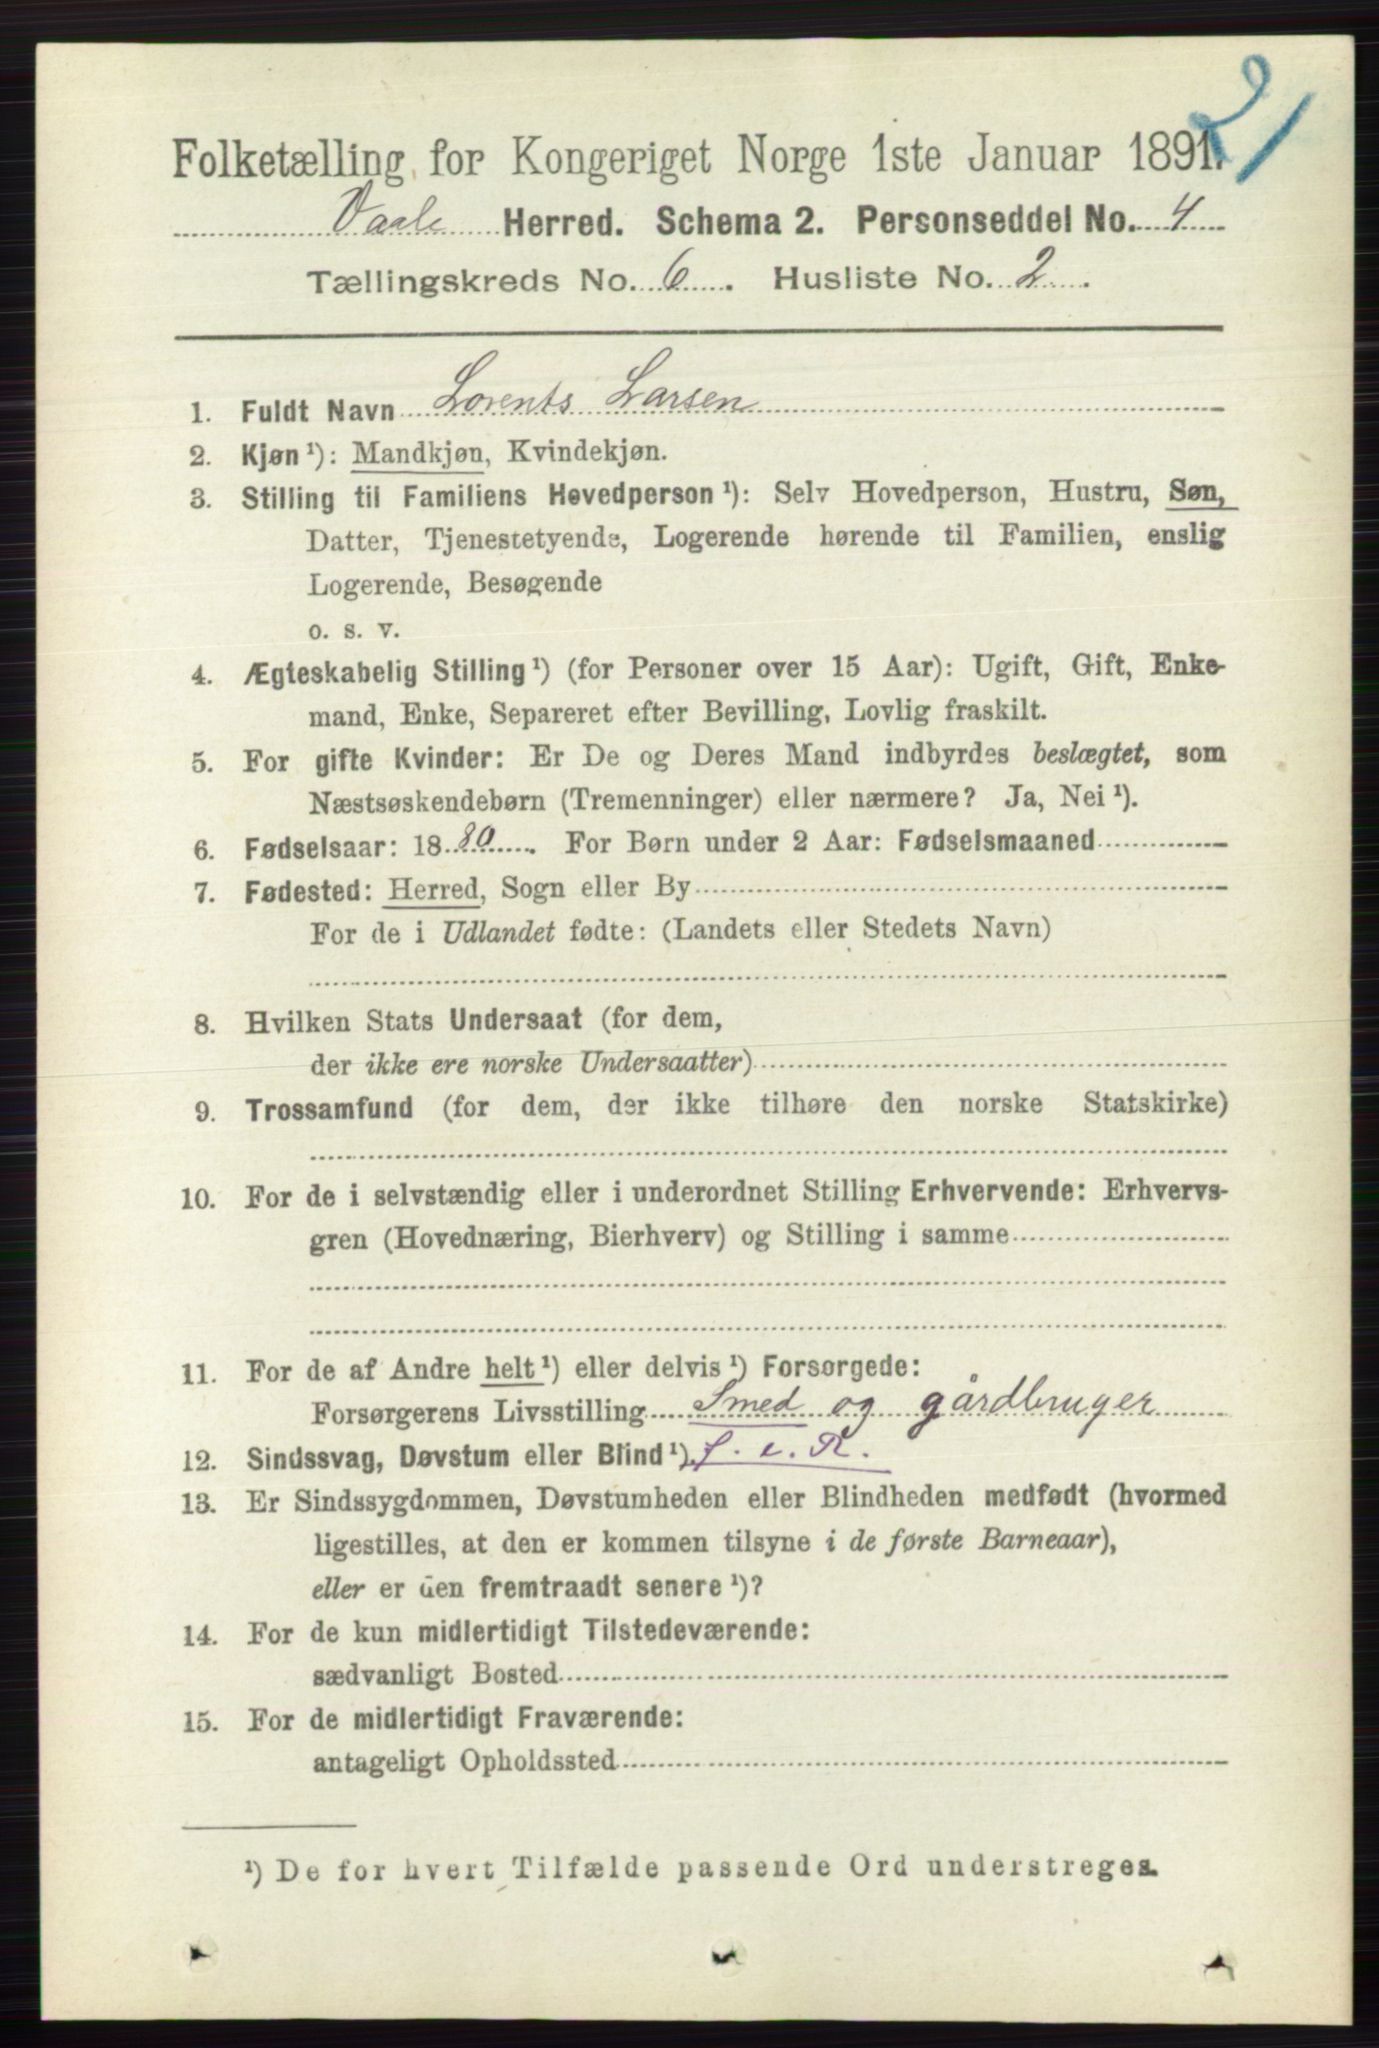 21
Folketælling for Kongeriget Norge 1ste Januar 1891.
Vaale Herred. Schema 2. Personseddel No. 4
Tællingskreds No. 6. Husliste No. 2.
1. Fuldt Navn Lorents Larsen
2. Kjøn ¹): Mandkjøn, Kvindekjøn.
3. Stilling til Familiens Hovedperson ¹): Selv Hovedperson, Hustru, Søn,
Datter, Tjenestetyende, Logerende hørende til Familien, enslig
Logerende, Besøgende
o. s. v.
4. Ægteskabelig Stilling ¹) (for Personer over 15 Aar): Ugift, Gift, Enke-
mand, Enke, Separeret efter Bevilling, Lovlig fraskilt.
5. For gifte Kvinder: Er De og Deres Mand indbyrdes beslægtet, som
Næstsøskendebørn (Tremenninger) eller nærmere? Ja, Nei ¹).
6. Fødselsaar: 1880. For Børn under 2 Aar: Fødselsmaaned
7. Fødested: Herred, Sogn eller By
For de i Udlandet fødte: (Landets eller Stedets Navn)
8. Hvilken Stats Undersaat (for dem,
der ikke ere norske Undersaatter)
9. Trossamfund (for dem, der ikke tilhøre den norske Statskirke)
10. For de i selvstændig eller i underordnet Stilling Erhvervende: Erhvervs-
gren (Hovednæring, Bierhverv) og Stilling i samme
11. For de af Andre helt ¹) eller delvis ¹) Forsørgede:
Forsørgerens Livsstilling Smed og gårdbruger
12. Sindssvag, Døvstum eller Blind ¹). f. e. R.
13. Er Sindssygdommen, Døvstumheden eller Blindheden medfødt (hvormed
ligestilles, at den er kommen tilsyne i de første Barneaar),
eller er den fremtraadt senere ¹)?
14. For de kun midlertidigt Tilstedeværende:
sædvanligt Bosted
15. For de midlertidigt Fraværende:
antageligt Opholdssted
¹) De for hvert Tilfælde passende Ord understreges.